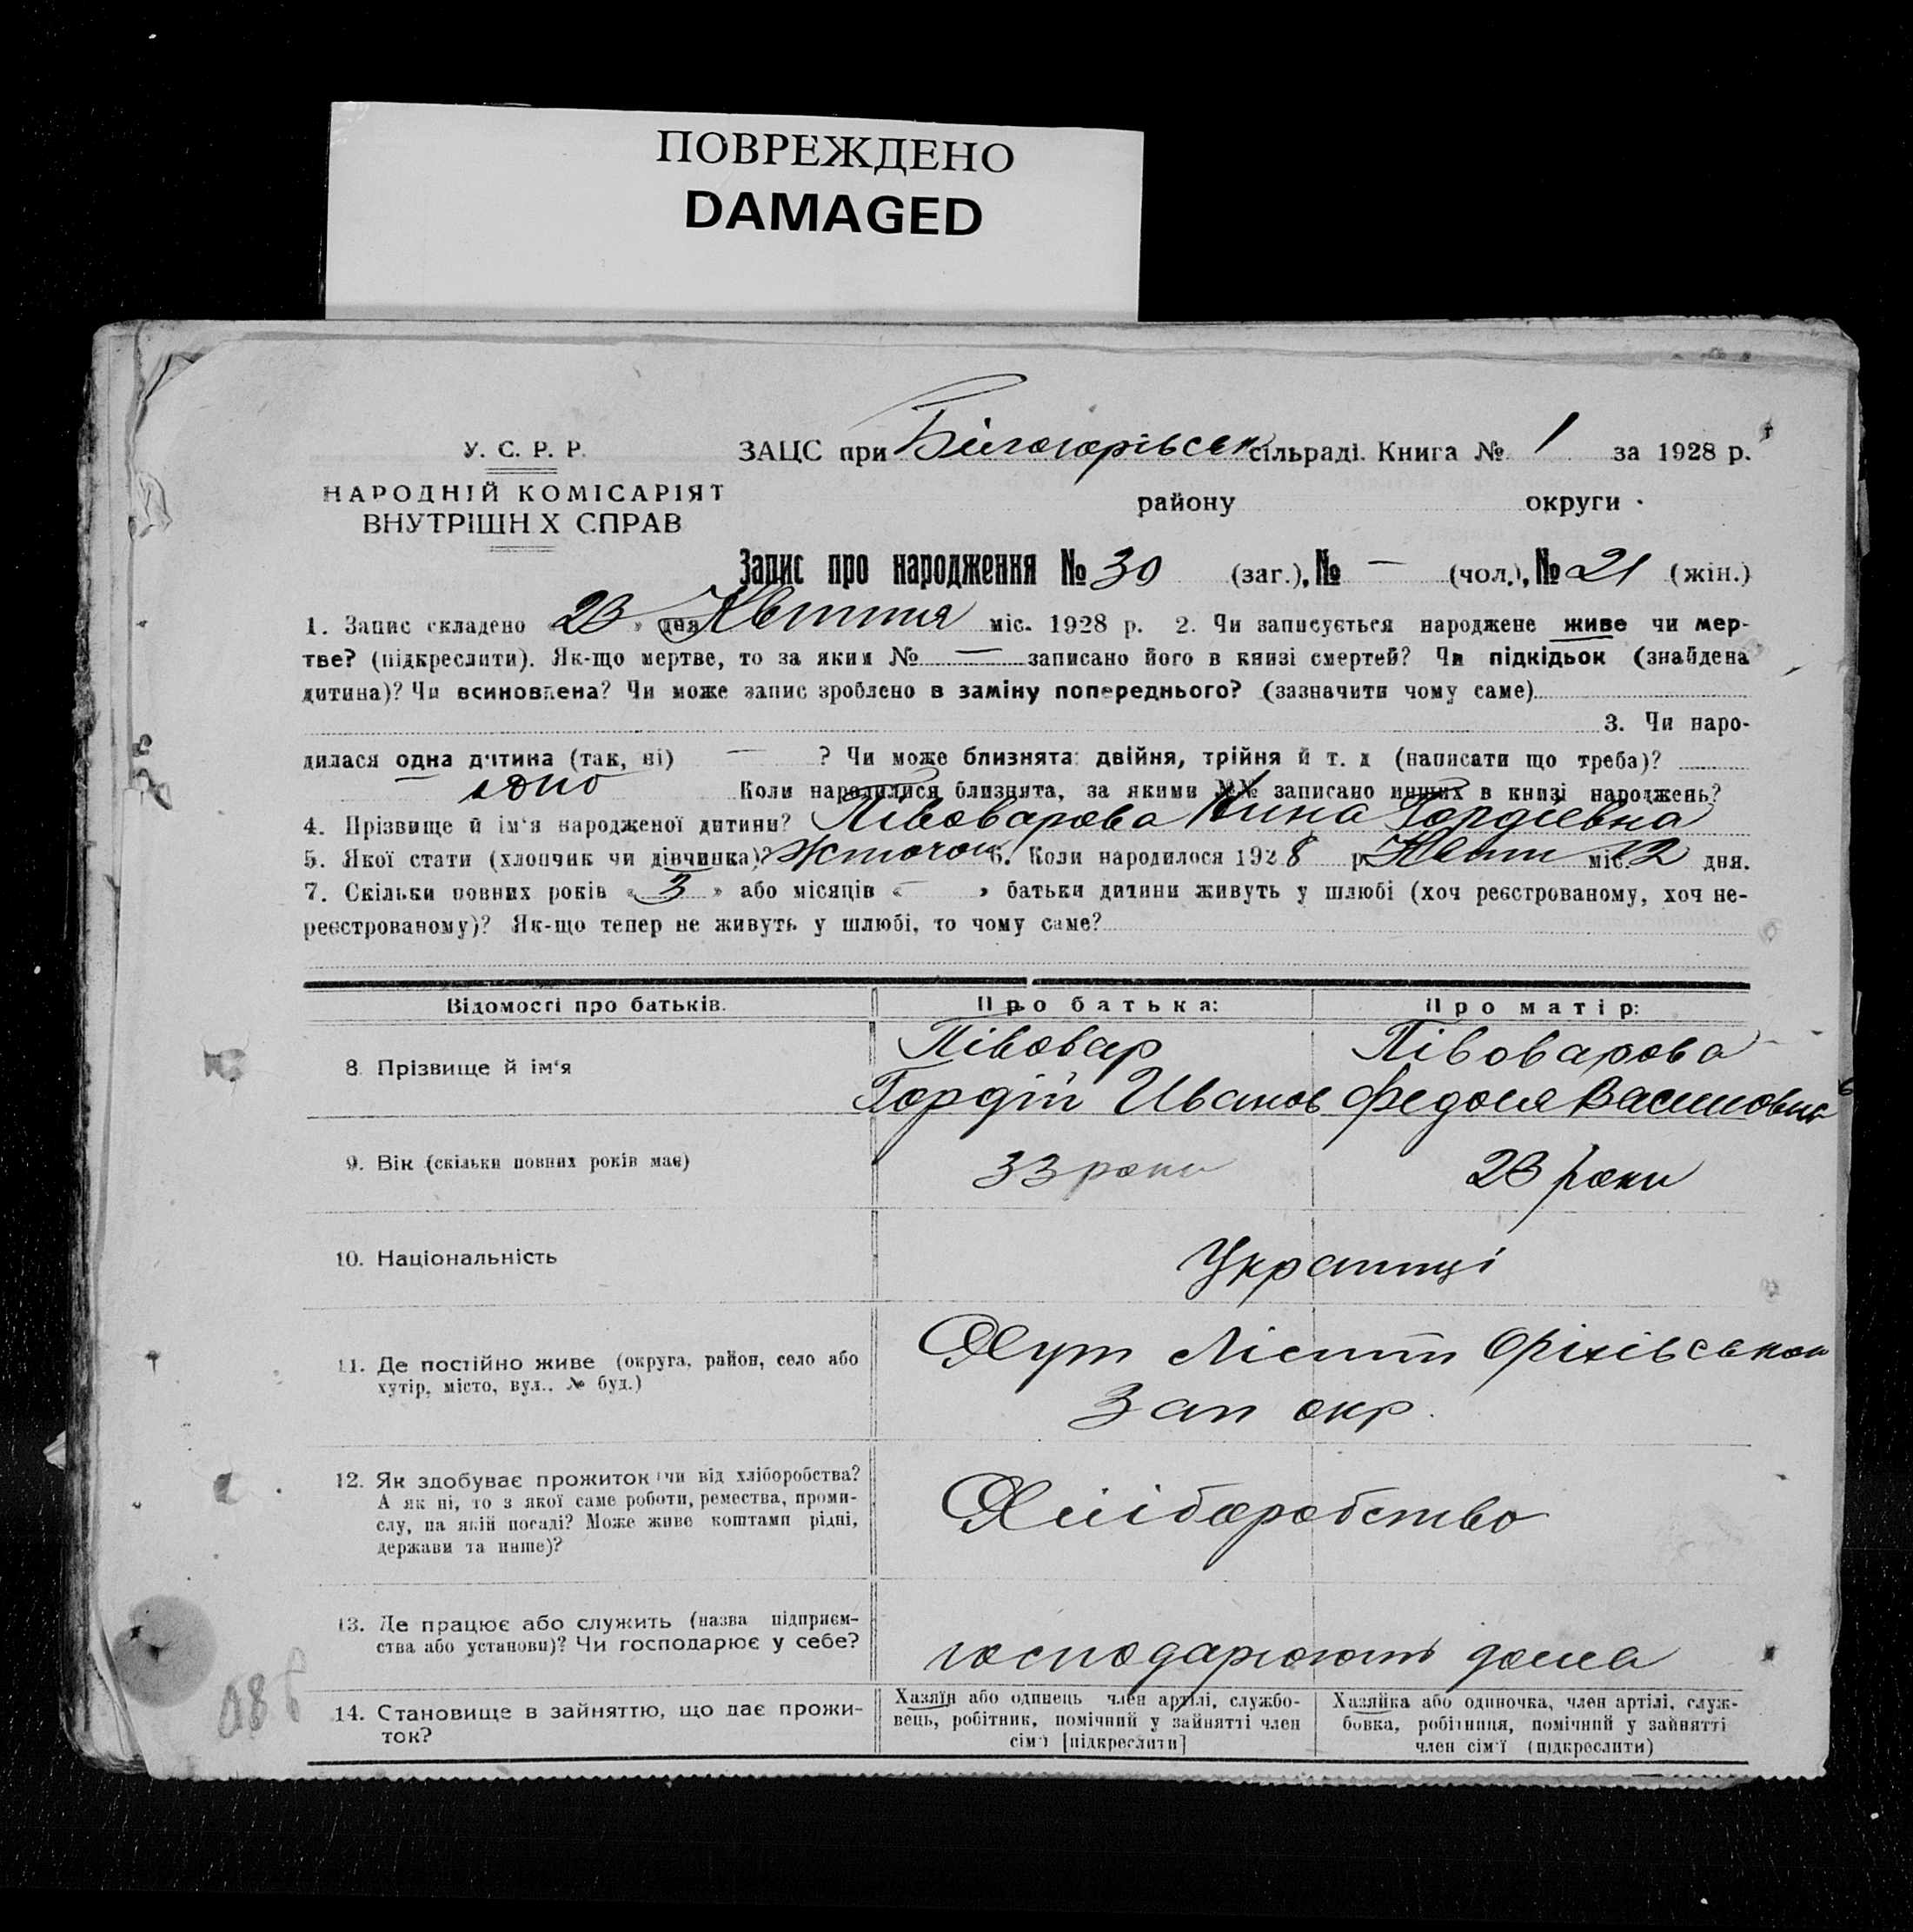 ПОВРЕЖДЕНО
DAMAGED
У. С. Р. Р.
НАРОДНІЙ КОМІСАРІЯТ
ВНУТРІШН Х СПРАВ
ЗАЦС при Білогорівськ сільраді. Книга № 1 за 1928 р.
району округи
Запис про народження № 30 (заг.), № — (чол.), № 21 (жін.)
1. Запис складено « 23 » дня Квітня міс. 1928 р. 2. Чи записується народжене живе чи мер-
тве? (підкреслити). Як-що мертве, то за яким № — записано його в книзі смертей? Чи підкідьок (знайдена
дитина)? Чи всиновлена? Чи може запис зроблено в заміну попереднього? (зазначити чому саме)
3. Чи наро-
дилася одна дитина (так, ні) — ? Чи може близнята: двійня, трійня й т. д (написати що треба)?
одно Коли народилися близнята, за якими №№ записано инших в книзі народжень?
4. Прізвище й ім'я народженої дитини? Півоварова Нина Гордіевна
5. Якої стати (хлопчик чи дівчинка)? 6. Коли народилося 1928 р. Квіт міс. 12 дня.
7. Скільки повних років « 3 » або місяців « — » батьки дитини живуть у шлюбі (хоч реєстрованому, хоч не-
реєстрованому)? Як-що тепер не живуть у шлюбі, то чому саме?
Відомості про батьків. Про батька: Про матір:
8. Прізвище й ім'я Півовар Півоварова
Гордій Иванов Федося Василовна
9. Вік (скільки повних років має) 33 роки 23 роки
10. Національність Українці
11. Де постійно живе (округа, район, село або
хутір, місто, вул., № буд.)
Хут Оріхівськои
Зап окр.
12. Як здобуває прожиток (чи від хліборобства?
А як ні, то з якої саме роботи, ремества, проми-
слу, на якій посаді? Може живе коштами рідні,
держави та инше)?
Хліборобство
13. Де працює або служить (назва підприєм-
ства або установи)? Чи господарює у себе?
господарюють дома
14. Становище в зайняттю, що дає прожи-
ток?
Хазяїн або одинець член артілі, службо-
вець, робітник, помічний у зайнятті член
сім'ї [підкреслити]
Хазяйка або одиночка, член артілі, служ-
бовка, робітниця, помічний у зайнятті
член сім'ї (підкреслити)